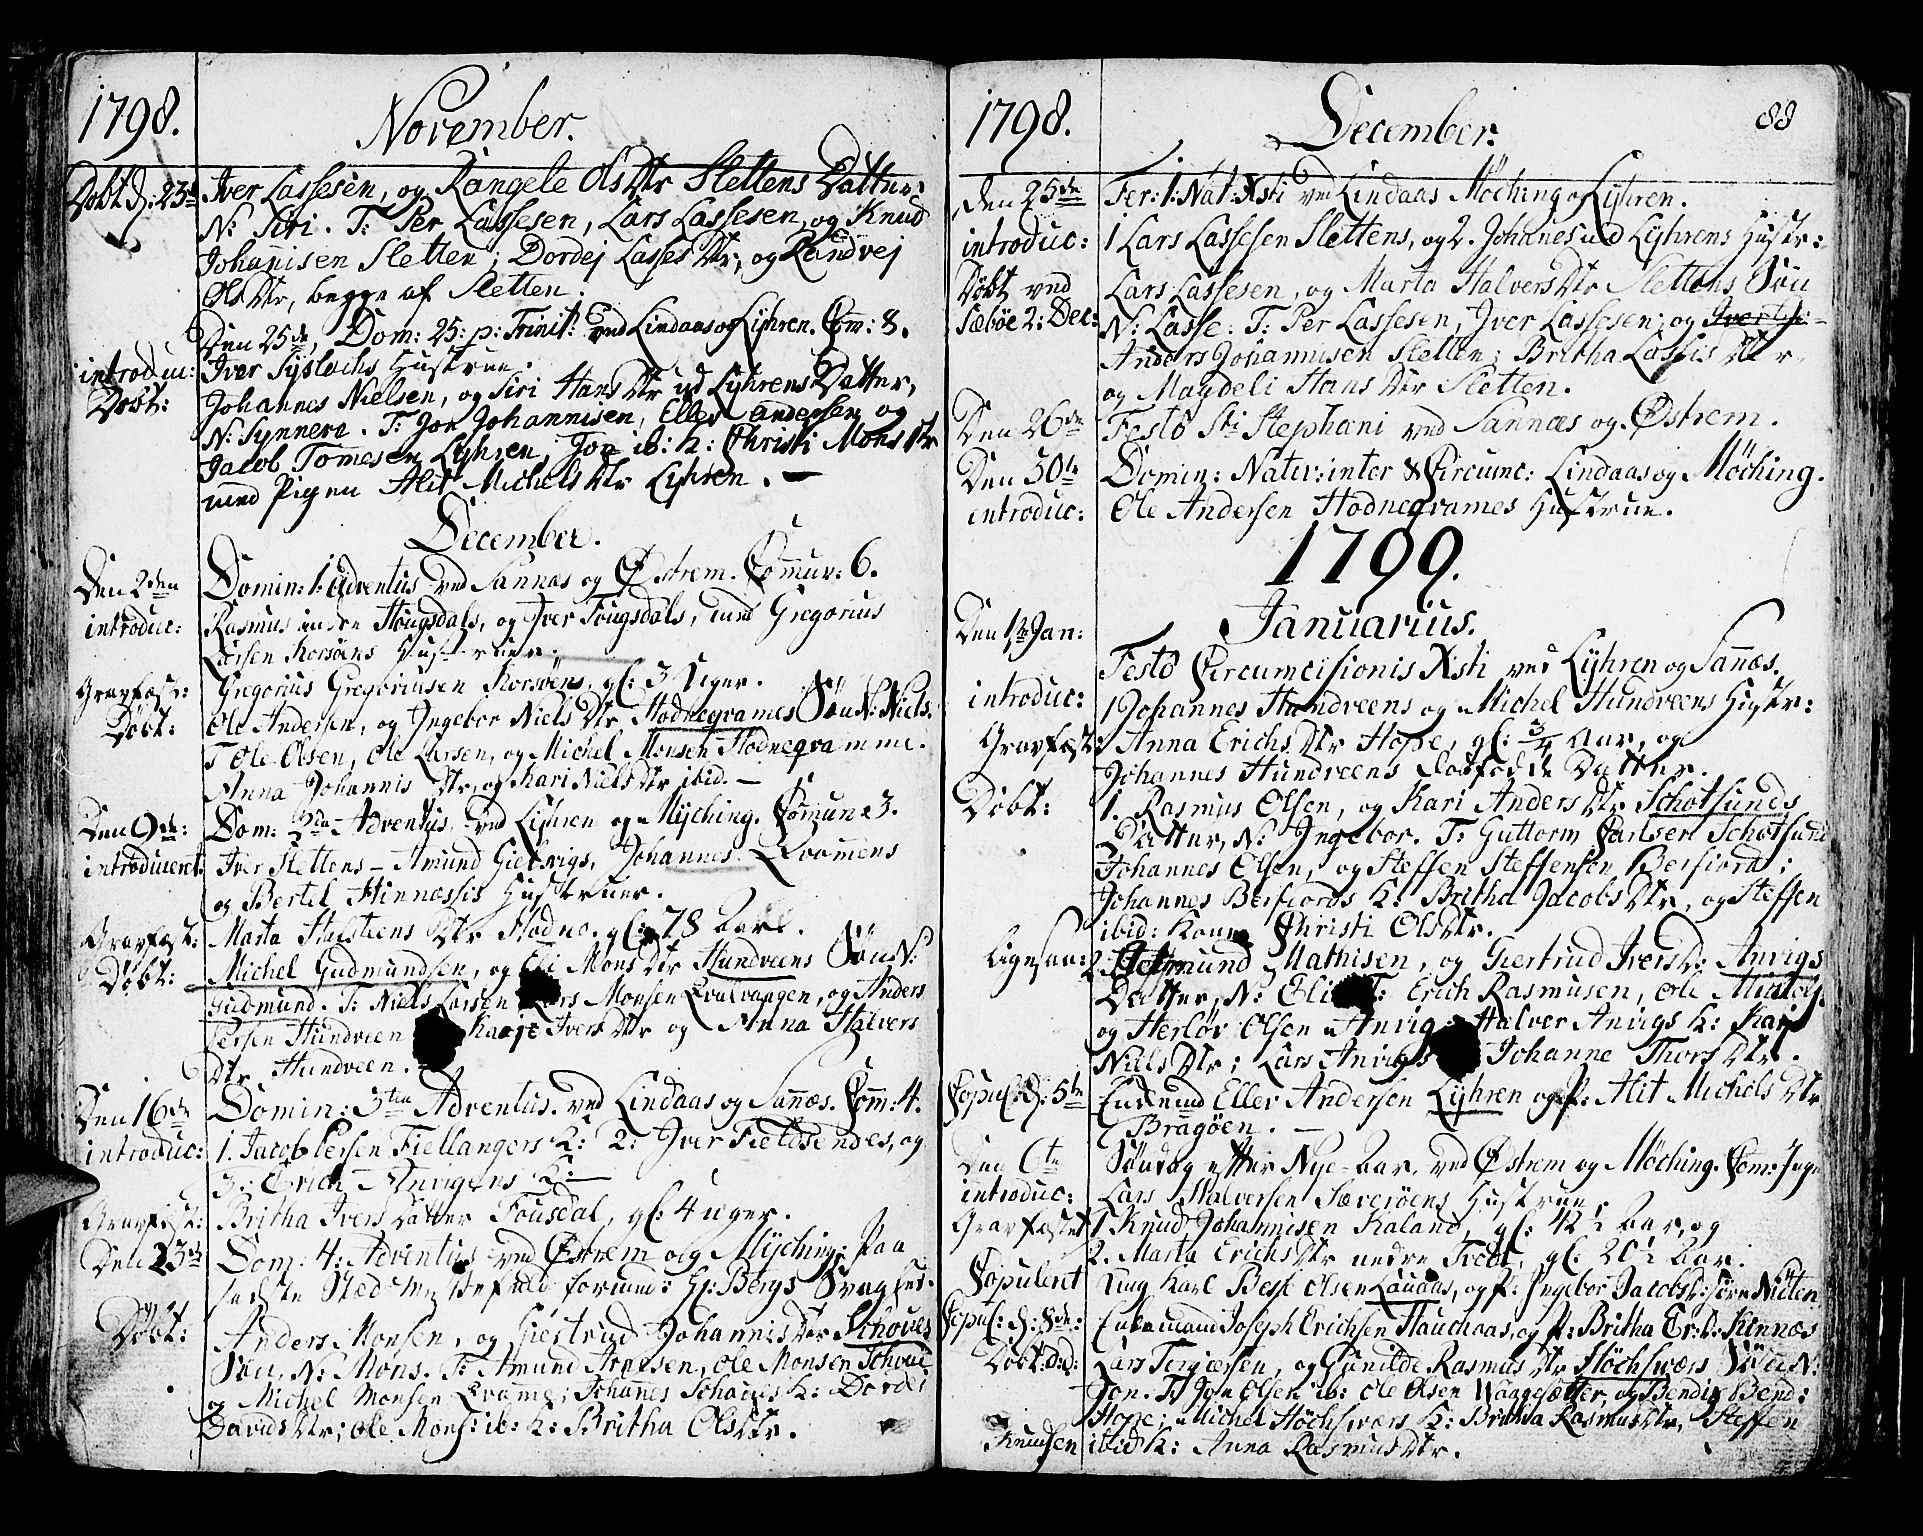 1798. November.
Døbt d: 23de Iver Lassesen, og Rangele OlsDtr Slettens Datter
N: Siri. T: Per Lassesen, Lars Lassesen, og Knud
Johannisen Sletten; Dordej LassesDtr, og Randvej
OlsDtr, begge af Sletten.
Den 25de, Dom: 25: p: Trinit: ved Lindaas og Lyhren. Com: 8.
introduc: Iver Hustrue.
Døbt: Johannes Nielsen, og Siri HansDtr ud Lyhrens Datter,
N: Synneva. T: Jon Johannisen, Eller Andersen og
Jacob Tomesen Lyhren, Jon ib: K: Christi MonsDtr
med Pigen Alit MichelsDtr Lyhren.
December.
Den 2den Domin: 1: Adventus ved Sannæs og Østrem. Commun: 6.
introduc: Rasmus indre Hougsdals, og Iver Fougsdals, med Gregorius
Larsen Korsøens Hustruer.
Gravfæst: Gregorius Gregoriusen Korsøens, gl: 3 Uger.
Døbt: Ole Andersen, og Ingebor NielsDtr Hodnegrames Søn N: Niels.
T Ole Olsen, Ole Larsen, og Michel Monsen Hodnegramme.
Anna JohannisDtr, og Kari NielsDtr ibid.
Den 9de: Dom: 2da Adventus, ved Lyhren og Mÿching. Comun: 3.
introduceret: Iver Slettens – Amund Gielsvigs, Johannes Qvamens
og Bertel Hinnæssis Hustruer.
Gravfæst: Marta HalsteensDtr Hodno. gl: 78 Aar.
Døbt: Michel Gudmundsen, og Eli MonsDtr Hundveens Søn N:
Gudmund. T: Niels Larsen Lars Monsen Qvalvangen, og Anders
Persen Hundveen Kaaje IversDtr og Anna Halvers
Dtr Hundveen.
Den 16de Domin: 3tia Adventus. ved Lindaas og Sannæs. Com: 4.
introduc: 1. Jacob Persen Fiellangers K: 2: Iver Fieldsendes, og
3: Erich Anvigens K:
Gravfæst: Britha Ivers Datter Fousdal, gl: 4 uger.
Den 23de Dom: 4: Adventus ved Østrem og Mÿching; Paa
sidste Stæd Hr: Bergs Svaghed.
Døbt: Anders Monsen, og Giertrud JohannisDtr Schoues
Søn, N: Mons. T: Amund Arnesen, Ole Monsen Schoue
og Michel Monsen Qvame; Johannes Schoues K: Dordei
DavidsDtr; Ole Mons: ib: K: Britha OlsDtr.
1798. December. 88
Den 25de Fer: 1: Nat: Xsti ved Lindaas Möching og Lyhren.
introduc: 1 Lars Lassesen Slettens, og 2. Johannes ud Lyhrens Hustr:
Døbt ved Lars Lassesen, og Marta HalversDtr Slettens Søn
Sæbøe 2: Dec: N: Lasse: T: Per Lassesen, Iver Lassesen; og
Anders Johannisen Sletten; Britha LassisDtr,
og Magdeli HansDtr Sletten.
Den 26de Festo Sti Stephani ved Sannæs og Østrem.
Den 30te Domin: Nativ: inter & Circumc: Lindaas og Möching.
introduc: Ole Andersen Hodnegrames Hustrue.
1799.
Januarius.
Den 1te Jan: Festo Circumcisionis Xsti ved Lyhren og Sannæs.
introduc: 1 Johannes Hundveens og Michel Hundveens Hustr:
Gravfæst: Anna ErichsDtr Hope, gl: 3/4 Aar, og
Johannes Hundveens dødfødde Datter.
Døbt: 1. Rasmus Olsen, og Kari AndersDtr Schotsunds
Datter, N: Ingebor. T: Guttorm Carlsen Schotsund
Johannes Olsen, og Steffen Steffensen Berfiord;
Johannes Berfiords K: Britha JacobsDtr, og Steffen
ibid: Kone Christi OlsDtr.
Ligesaa: 2. Mathisen, og Giertrud IversD: Anvigs
Datter, N: Eli T: Erich Rasmusen, Ole
og Herlöv Olsen Anvig Halver Anvigs K: Kari
NielsDtr; Lars Anvigs Johanne ThorsDtr.
Copul: d: 5te Eller Andersen Lyhren og P: Alit MichelsDtr
Bragöen.
Den 6te Söndag efter Nye-Aar, ved Østrem og Möching. Com: Ingen
introduc: Lars Halversen Sæveröens Hustrue.
Gravfæstet 1 Knud Johannisen Kaland, gl: 42 1/2 Aar, og
2. Marta ErichsDtr nedre gl: 20 1/2 Aar.
Copuleret Ung Karl Besse Olsen Lauvaas, og P: Ingebor JacobsD:
Copul: d: 8de: Enkemand Joseph Erichsen Hauchaas, og P: Britha Er:D: Kinnæs
Døbt: d:d: Lars Terjersen, og Gunilde RasmusDtr Höchsværs Søn N:
Jon. T: Jon Olsen ib: Ole Olsen Waagesetter, og Bendix Bend:
Hope; Michel Höchsværs K: Britha RasmusDtr, Steffen
Knudsen ibid K: Anna RasmusDtr.